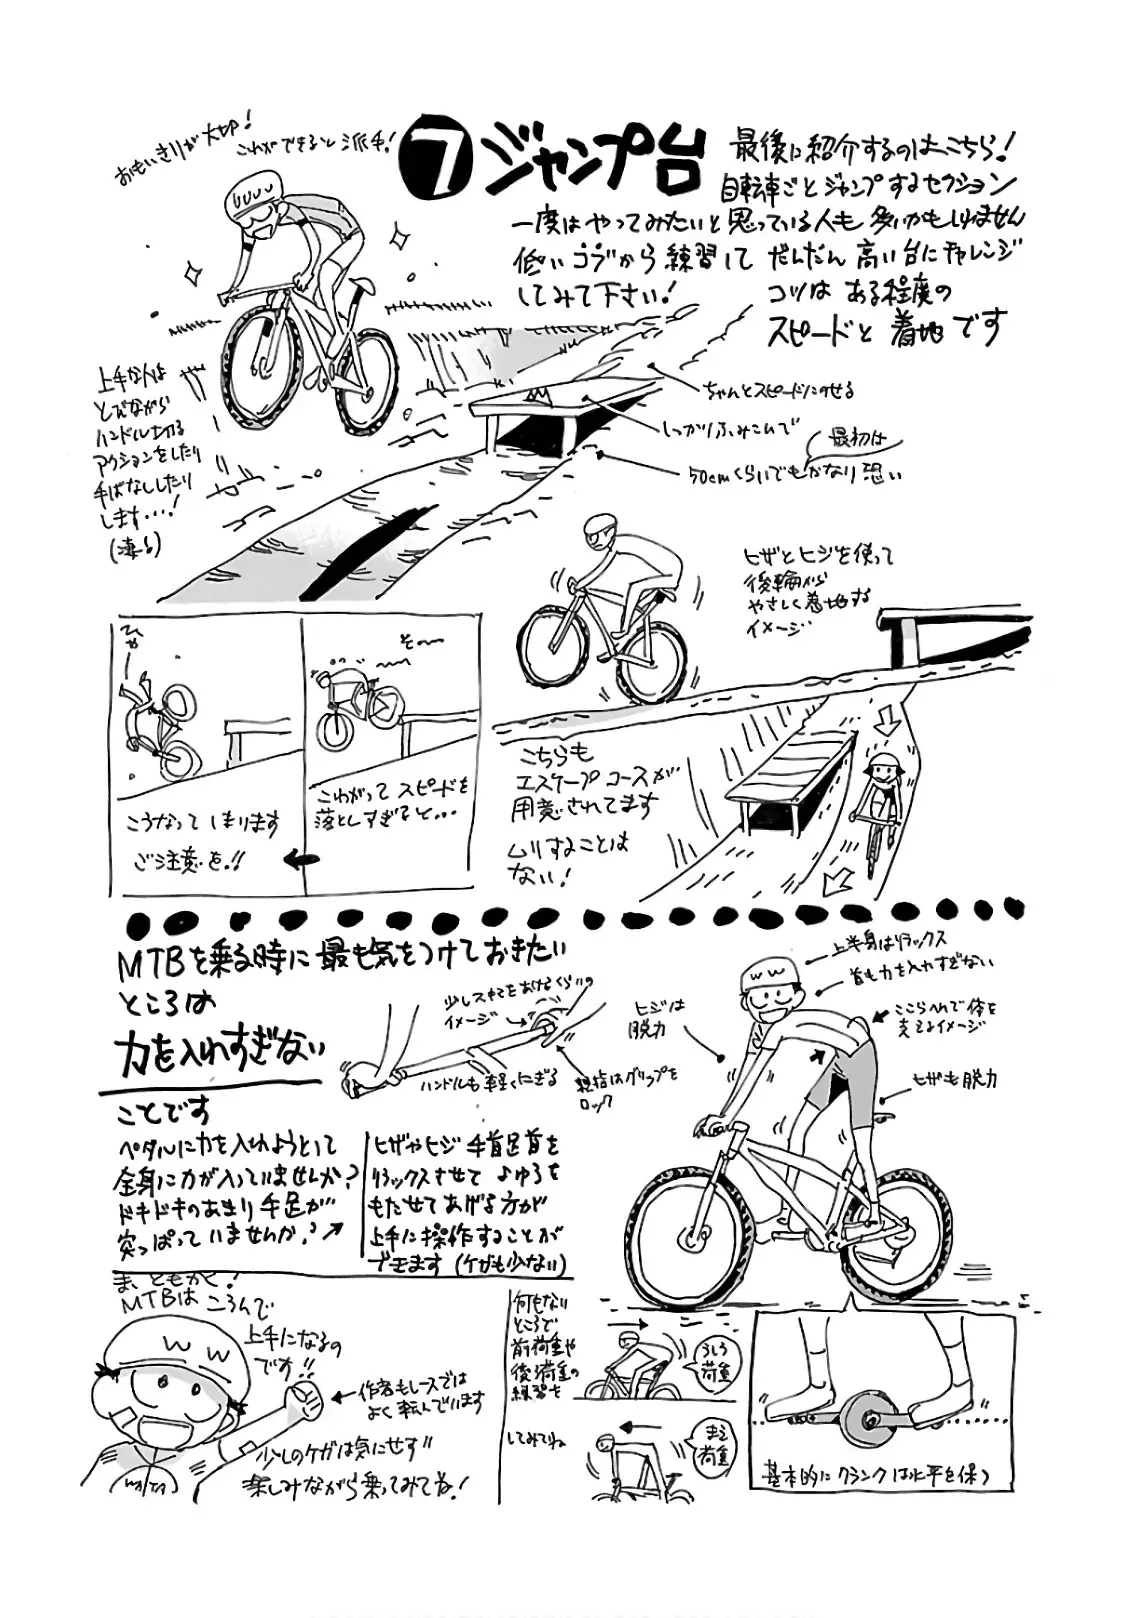 おもいきりが大切!
これができると派手!
7 ジャンプ台
最後に紹介するのはこちら!
自転車ごとジャンプするセクション
一度はやってみたいと思っている人も多いかもしれません
低いコブから練習して だんだん高い台にチャレンジ
してみて下さい!
コツは ある程度の
スピードと 着地です
上手な人は
とびながら
ハンドル切る
アクションをしたり
手ばなししたり
します・・・!
(凄る)
ちゃんとスピードにのせる
しっかりふみこんで
最初は
50cmくらいでもかなり恐い
ヒザとヒジを使って
後輪から
やさしく着地する
イメージ
ひゃー
こうなってしまいます
ご注意を!!
そ〜〜
こわがってスピードを
落としすぎると・・・
こちらも
エスケープコースが
用意されてます
ムリすることは
ない!
MTBを乗る時に最も気をつけておきたい
ところは
力を入れすぎない
ことです
少しスキマをあけるくらいの
イメージ
ハンドルも軽くにぎる
親指はグリップを
ロック
ペダルに力を入れようとして
全身に力が入っていませんか?
ドキドキのあまり手足が
突っぱっていませんか?
ヒザやヒジ 手首足首を
リラックスさせて よゆうを
もたせてあげる方が
上手に操作することが
できます (ケガも少ない)
上半身はリラックス
首も力を入れすぎない
ここらへんで体を
支えるイメージ
ヒジは
脱力
ヒザも脱力
WW
ま、ともかく!
MTBは ころんで
上手になるの
です!!
W W
作者もレースでは
よく転んでいます
少しのケガは気にせず!!
楽しみながら乗ってみてね!
何もない
ところで
前荷重や
後ろ荷重の
練習を
してみてね
うしろ
荷重
まえ
荷重
基本的にクランクは水平を保つ